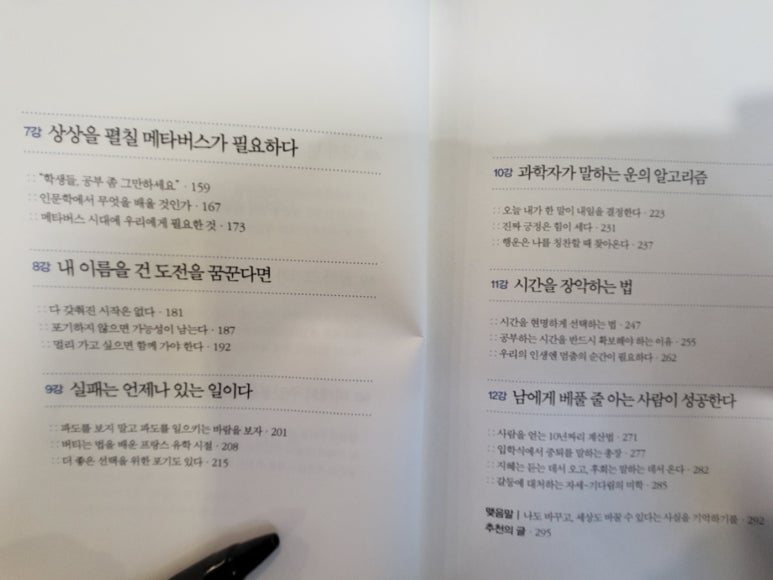 7강 상상을 펼칠 메타버스가 필요하다
:: "학생들, 공부 좀 그만하세요" · 159
:: 인문학에서 무엇을 배울 것인가 · 167
:: 메타버스 시대에 우리에게 필요한 것 · 173
8강 내 이름을 건 도전을 꿈꾼다면
:: 다 갖춰진 시작은 없다 · 181
:: 포기하지 않으면 가능성이 남는다 · 187
:: 멀리 가고 싶으면 함께 가야 한다 · 192
9강 실패는 언제나 있는 일이다
:: 파도를 보지 말고 파도를 일으키는 바람을 보자 · 201
:: 버티는 법을 배운 프랑스 유학 시절 · 208
:: 더 좋은 선택을 위한 포기도 있다 · 215
10강 과학자가 말하는 운의 알고리즘
:: 오늘 내가 한 말이 내일을 결정한다 · 223
:: 진짜 긍정은 힘이 세다 · 231
:: 행운은 나를 칭찬할 때 찾아온다 · 237
11강 시간을 장악하는 법
:: 시간을 현명하게 선택하는 법 · 247
:: 공부하는 시간을 반드시 확보해야 하는 이유 · 255
:: 우리의 인생엔 멈춤의 순간이 필요하다 · 262
12강 남에게 베풀 줄 아는 사람이 성공한다
:: 사람을 얻는 10년짜리 계산법 · 271
:: 입학식에서 중퇴를 말하는 총장 · 277
:: 지혜는 듣는 데서 오고, 후회는 말하는 데서 온다 · 282
:: 갈등에 대처하는 자세-기다림의 미학 · 285
맺음말 | 나도 바꾸고, 세상도 바꿀 수 있다는 사실을 기억하기를 · 292
추천의 글 · 295